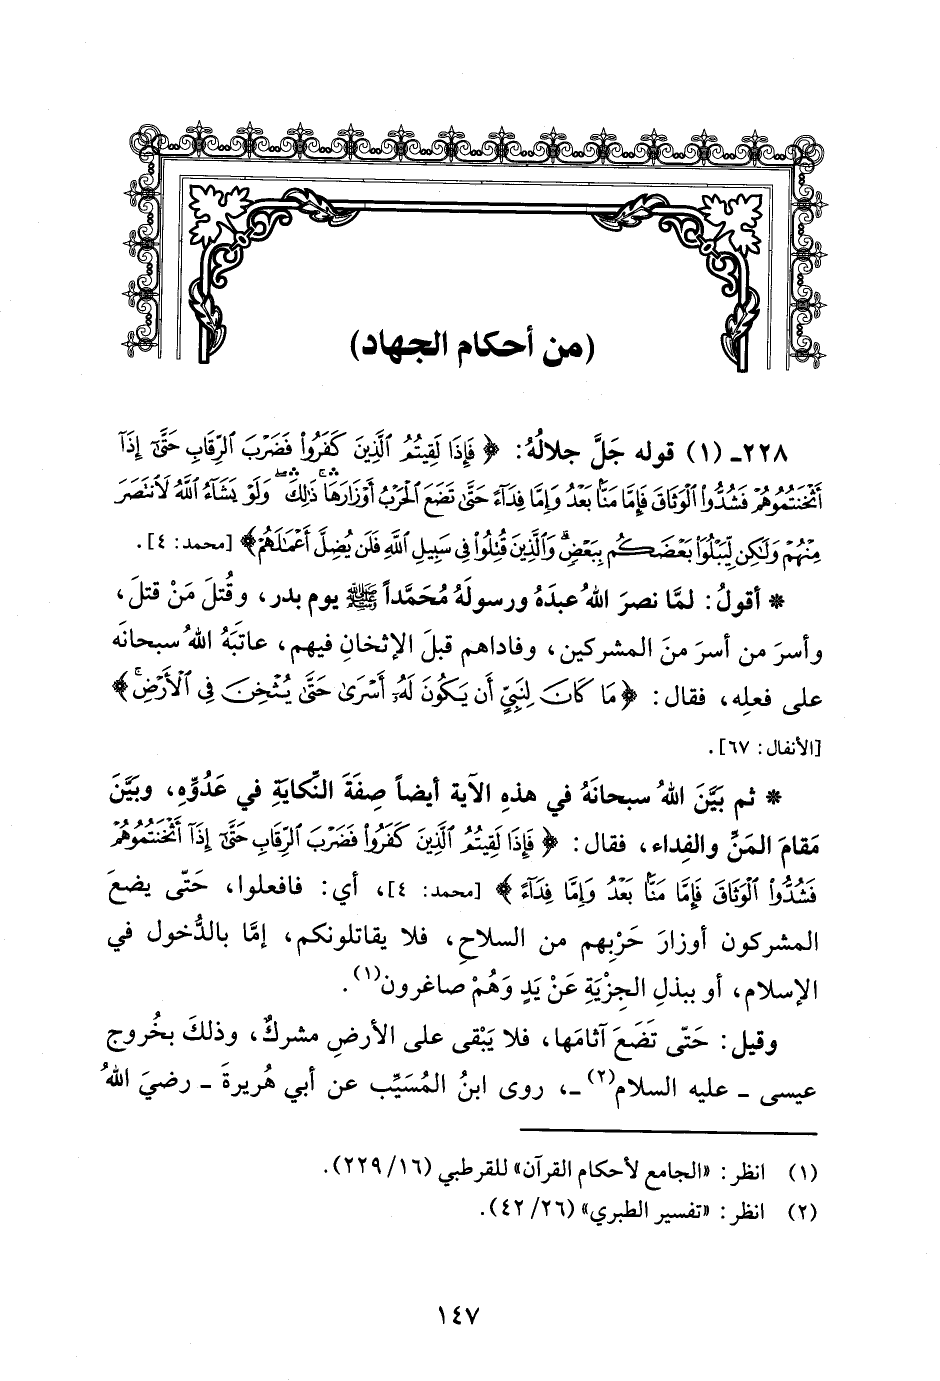 (من أحكام الجهاد)
٢٢٨ـ (١) قوله جَلَّ جلالُهُ: ﴿ فَإِذَا لَقِيتُمُ ٱلَّذِينَ كَفَرُوا۟ فَضَرْبَ ٱلرِّقَابِ حَتَّىٰٓ إِذَآ
أَثْخَنتُمُوهُمْ فَشُدُّوا۟ ٱلْوَثَاقَ فَإِمَّا مَنًّۢا بَعْدُ وَإِمَّا فِدَآءً حَتَّىٰ تَضَعَ ٱلْحَرْبُ أَوْزَارَهَا ۚ ذَٰلِكَ ۖ وَلَوْ يَشَآءُ ٱللَّهُ لَٱنتَصَرَ
مِنْهُمْ وَلَـٰكِن لِّيَبْلُوَا۟ بَعْضَكُم بِبَعْضٍ ۗ وَٱلَّذِينَ قُتِلُوا۟ فِى سَبِيلِ ٱللَّهِ فَلَن يُضِلَّ أَعْمَـٰلَهُمْ﴾ [محمد: ٤].
* أقولُ: لمَّا نصرَ اللهُ عبدَهُ ورسولَهُ مُحَمَّداً ﷺ يوم بدر، وقُتلَ مَنْ قتلَ،
وأسرَ من أسرَ منَ المشركين، وفاداهم قبلَ الإثخانِ فيهم، عاتَبَهُ اللهُ سبحانَه
على فعلِه، فقال: ﴿ مَا كَانَ لِنَبِىٍّ أَن يَكُونَ لَهُۥٓ أَسْرَىٰ حَتَّىٰ يُثْخِنَ فِى ٱلْأَرْضِ ۚ ﴾
[الأنفال: ٦٧].
* ثم بَيَّنَ اللهُ سبحانَهُ في هذهِ الآية أيضاً صِفَةَ النِّكايَةِ في عَدُوِّهِ، وبَيَّنَ
مَقامَ المَنِّ والفِداء، فقال: ﴿ فَإِذَا لَقِيتُمُ ٱلَّذِينَ كَفَرُوا۟ فَضَرْبَ ٱلرِّقَابِ حَتَّىٰٓ إِذَآ أَثْخَنتُمُوهُمْ
فَشُدُّوا۟ ٱلْوَثَاقَ فَإِمَّا مَنًّۢا بَعْدُ وَإِمَّا فِدَآءً ﴾ [محمد: ٤]، أي: فافعلوا، حَتّى يضعَ
المشركون أوزارَ حَرْبِهم من السلاحِ، فلا يقاتلونكم، إمَّا بالدُّخول في
الإسلام، أو ببذلِ الجِزْيَةِ عَنْ يَدٍ وَهُمْ صاغرون(١).
وقيل: حَتّى تَضَعَ آثامَها، فلا يَبْقى على الأرضِ مشركٌ، وذلكَ بخُروج
عيسى ـ عليه السلام(٢) ـ، روى ابنُ المُسَيِّب عن أبي هُريرةَ ـ رضيَ اللهُ
(١) انظر: «الجامع لأحكام القرآن» للقرطبي (١٦/ ٢٢٩).
(٢) انظر: «تفسير الطبري» (٢٦/ ٤٢).
١٤٧